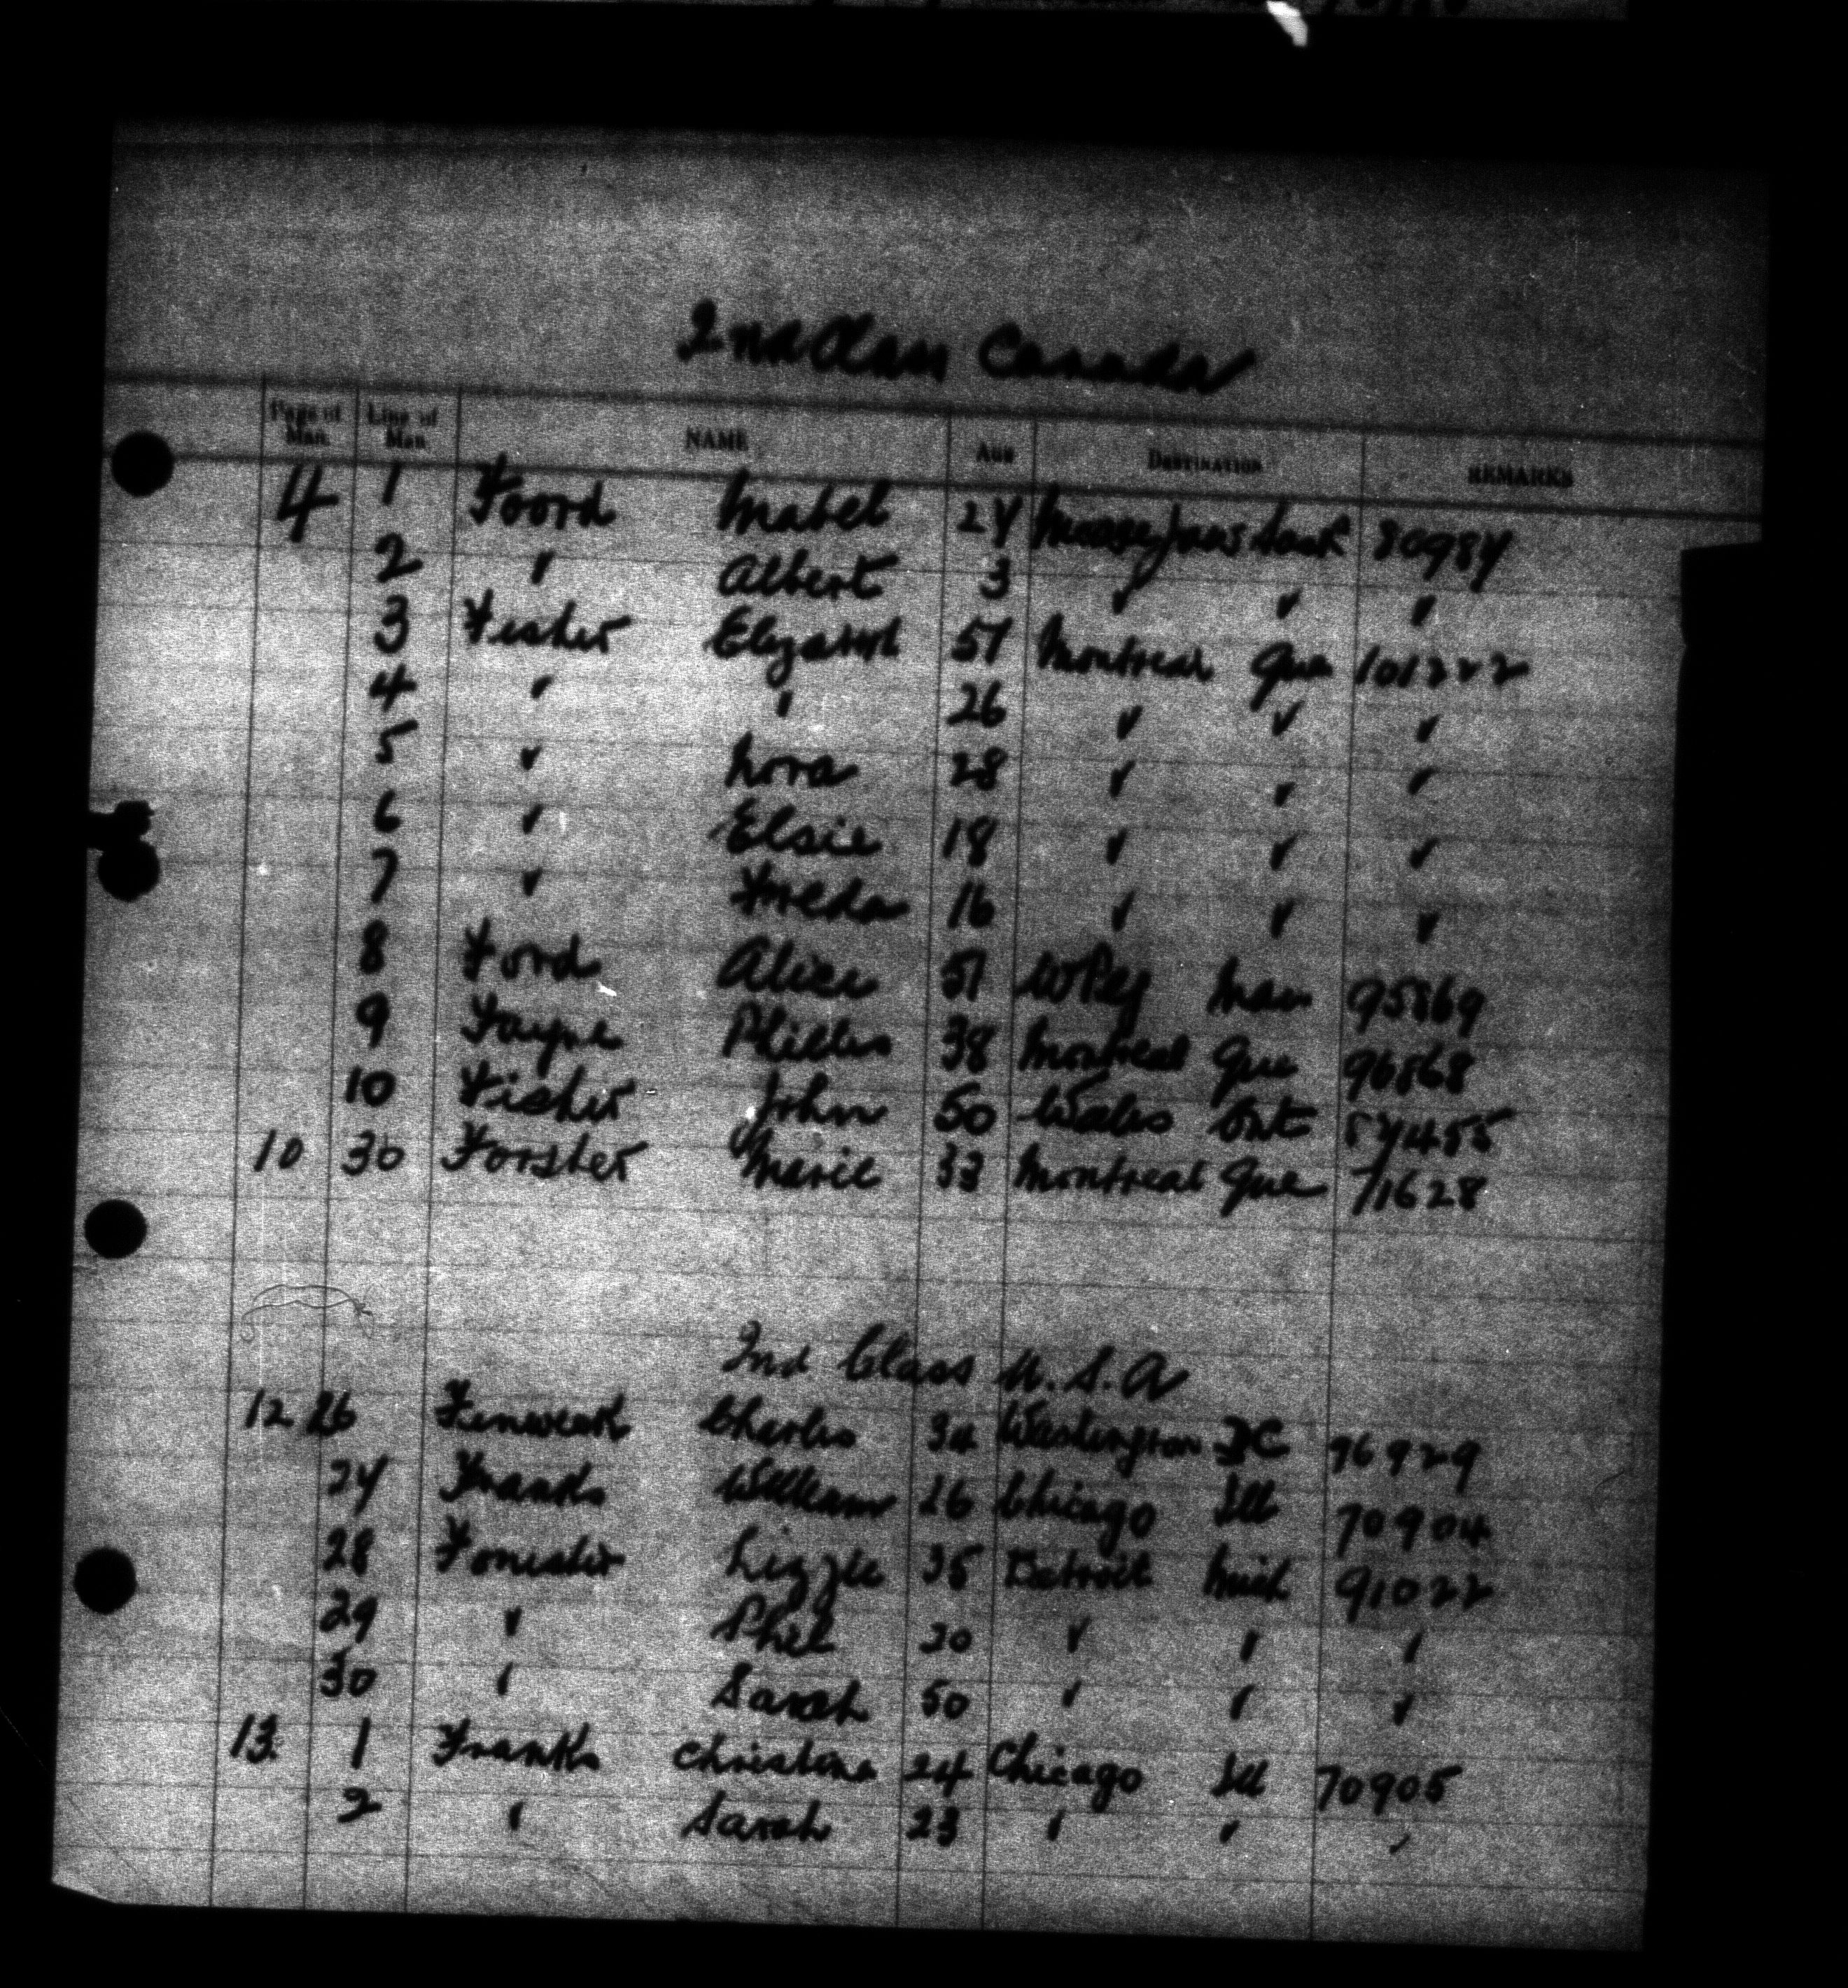 2nd Class Canada
Page of Man. Line of Man NAME AGE DESTINATION REMARKS
4 1 Foord Mabel 27 Moose Jaw Sask 80987
2 " Albert 3 " " "
3 Fisher Elizabth 57 Montreal Que 101222
4 " " 26 " " "
5 " Nora 28 " " "
6 " Elsie 18 " " "
7 " Freda 16 " " "
8 Ford Alice 51 WPeg Man 95869
9 Fayne 38 Montreal Que 96868
10 Fisher John 50 Wales Ont 57455
10 30 Forster Marie 33 Montreal Que 71628
2nd Class U.S.A
12 26 Fenwick Charles 34 Washington DC 96929
27 Franks William 26 Chicago Ill 70904
28 Lizzie 35 Detroit Mich 91022
29 " Phil 30 " " "
30 " Sarah 50 " " "
13 1 Franks Christina 24 Chicago Ill 70905
2 " Sarah 23 " " "